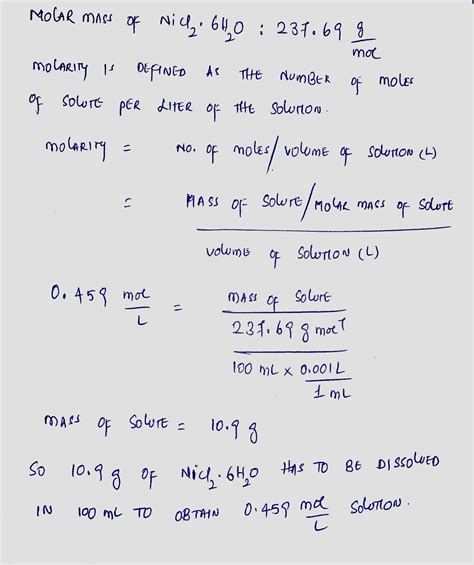 MOLAR MASS OF NiCl₂·6H₂O : 237.69 g/mol
MOLARITY IS DEFINED AS THE NUMBER OF MOLES
OF SOLUTE PER LITER OF THE SOLUTION.
MOLARITY = NO. OF MOLES/VOLUME OF SOLUTION (L)
= MASS OF SOLUTE/MOLAR MASS OF SOLUTE
VOLUME OF SOLUTION (L)
0.459 mol/L = MASS OF SOLUTE
237.69 g mol⁻¹
100 mL x 0.001L
1 mL
MASS OF SOLUTE = 10.9 g
SO 10.9 g OF NiCl₂·6H₂O HAS TO BE DISSOLVED
IN 100 mL TO OBTAIN 0.459 mol/L SOLUTION.